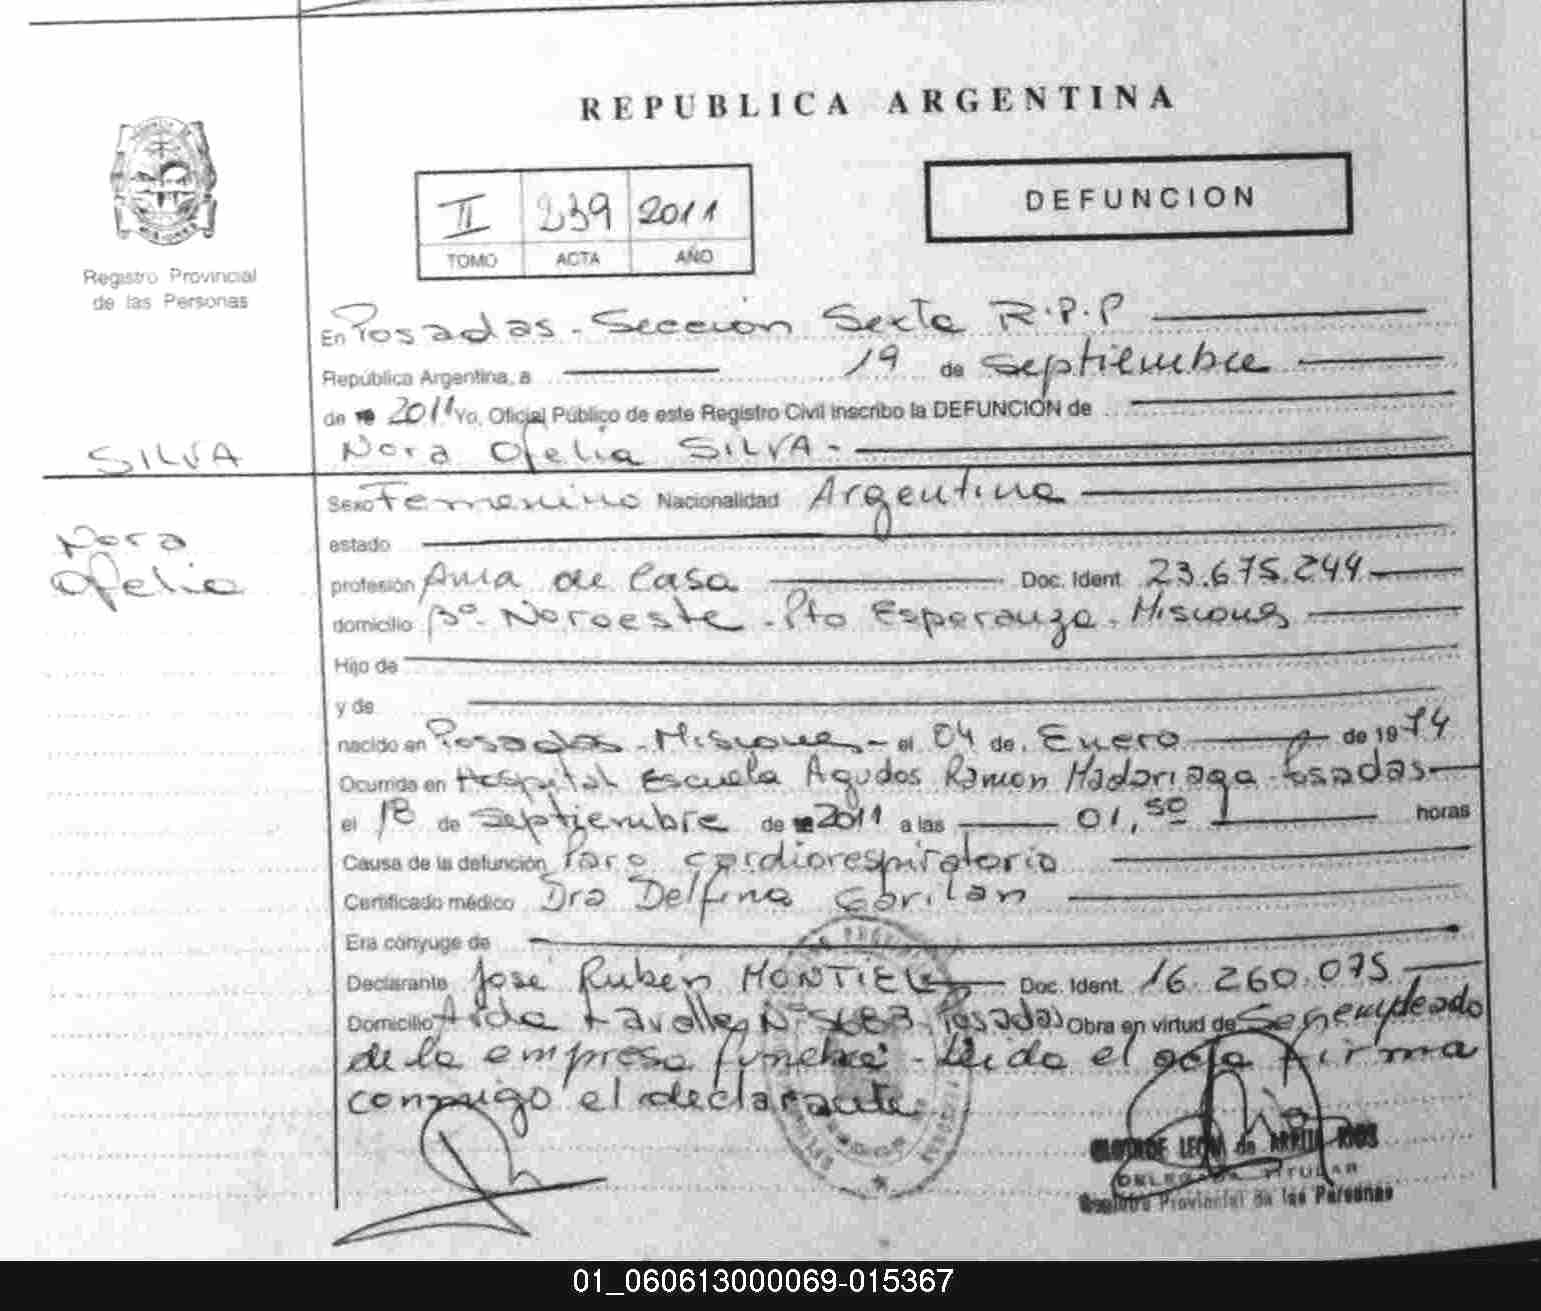 REPUBLICA ARGENTINA
II 239 2011
TOMO ACTA AÑO
DEFUNCION
Registro Provincial
de las Personas
En Posadas - Sección Sexta R.P.P
República Argentina, a 19 de Septiembre
de 2011 Yo, Oficial Público de este Registro Civil inscribo la DEFUNCION de
SILVA
Nora Ofelia SILVA -
Nora
Ofelia
Sexo Femenino Nacionalidad Argentina
estado
profesión Ama de Casa Doc. Ident. 23.675.244
domicilio Bº Noroeste - Pto Esperanza - Misiones
Hijo de
y de
nacido en Posadas - Misiones - el 04 de Enero de 1974
Ocurrida en Hospital Escuela Agudos Ramon Madariaga - Posadas
el 18 de Septiembre de 2011 a las 01,50 horas
Causa de la defunción Paro cardiorespiratorio
Certificado médico Dra Delfina
Era cónyuge de
Declarante José Ruben MONTIEL Doc. Ident. 16.260.075
Domicilio Avda Lavalle Nº Posadas Obra en virtud de Ser empleado
de la empresa funebre - Leida el acta firma
conmigo el declarante
LEON de
DELEGADA TITULAR
Registro Provincial de las Personas
01_060613000069-015367